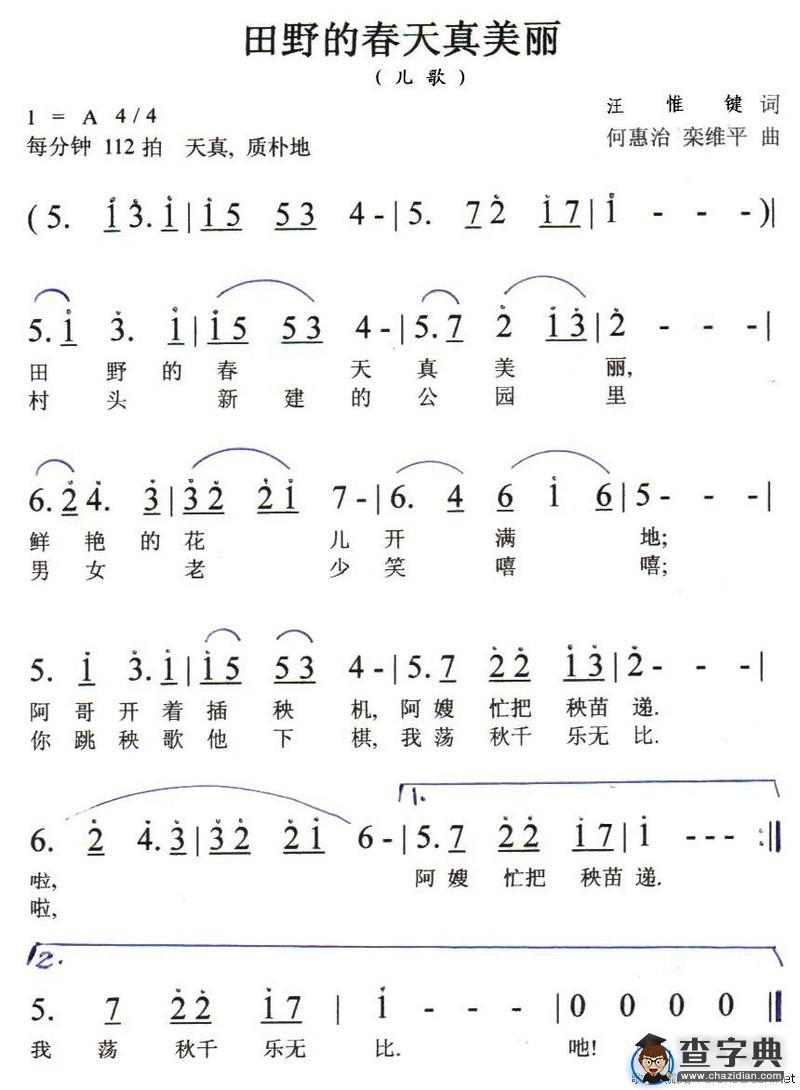 田野的春天真美丽
(儿歌)
1 = A 4/4
汪惟键 词
每分钟 112 拍 天真, 质朴地
何惠治 栾维平 曲
( 5. i 3. i | i 5 5 3 4 - | 5. 7 2 i 7 | i - - - ) |
5. i 3. i | i 5 5 3 4 - | 5. 7 2 i 3 | 2 - - - |
田 野 的 春 天 真 美 丽,
村 头 新 建 的 公 园 里
6. 2 4. 3 | 3 2 2 i 7 - | 6. 4 6 i 6 | 5 - - - |
鲜 艳 的 花 儿 开 满 地;
男 女 老 少 笑 嘻 嘻;
5. i 3. i | i 5 5 3 4 - | 5. 7 2 2 i 3 | 2 - - - |
阿 哥 开 着 插 秧 机, 阿 嫂 忙把 秧苗 递.
你 跳 秧 歌 他 下 棋, 我 荡 秋千 乐无 比.
1.
6. 2 4. 3 | 3 2 2 i 6 - | 5. 7 2 2 i 7 | i - - - :||
啦, 阿 嫂 忙把 秧苗 递.
啦,
2.
5. 7 2 2 i 7 | i - - - | 0 0 0 0 ||
我 荡 秋千 乐无 比. 吔!
查字典
www.chazidian.com